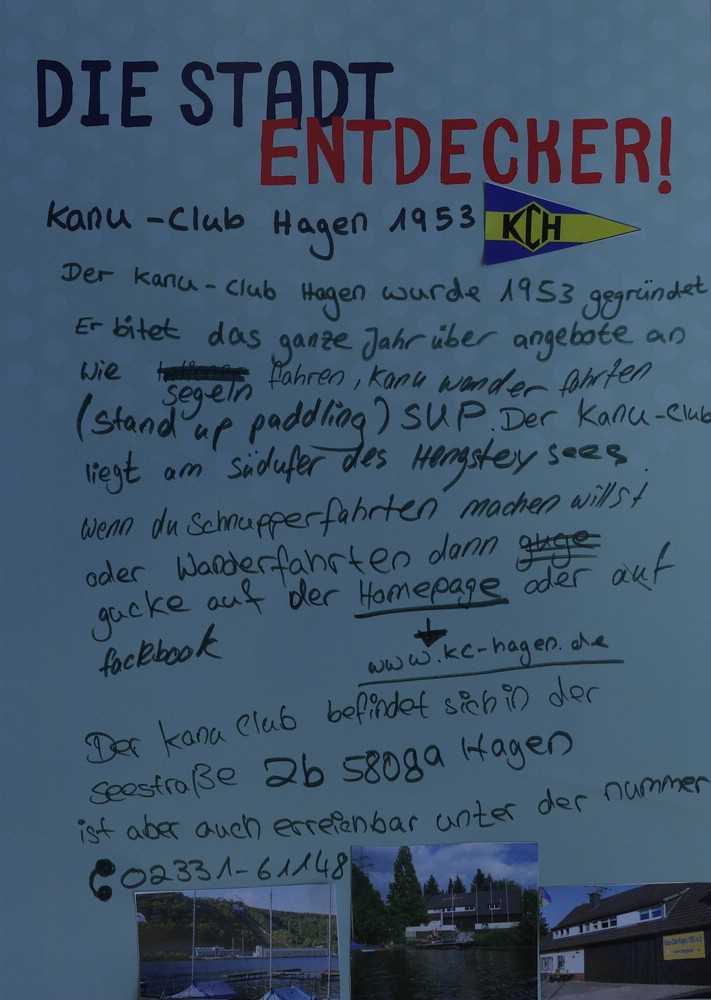 DIE STADT
ENTDECKER!
Kanu-Club Hagen 1953
KCH
Der Kanu-Club Hagen wurde 1953 gegründet
Er bitet das ganze Jahr über angebote an
wie segeln fahren, Kanu wander fahrten
(Stand up paddling) SUP. Der Kanu-Club
liegt am südufer des Hengstey sees.
wenn du Schnupperfahrten machen willst
oder Wanderfahrten dann guge
gucke auf der Homepage oder auf
fackbook
www.kc-hagen.de
Der Kanu Club befindet sich in der
Seestraße 2b 58089 Hagen
ist aber auch erreichbar unter der nummer
02331-61148